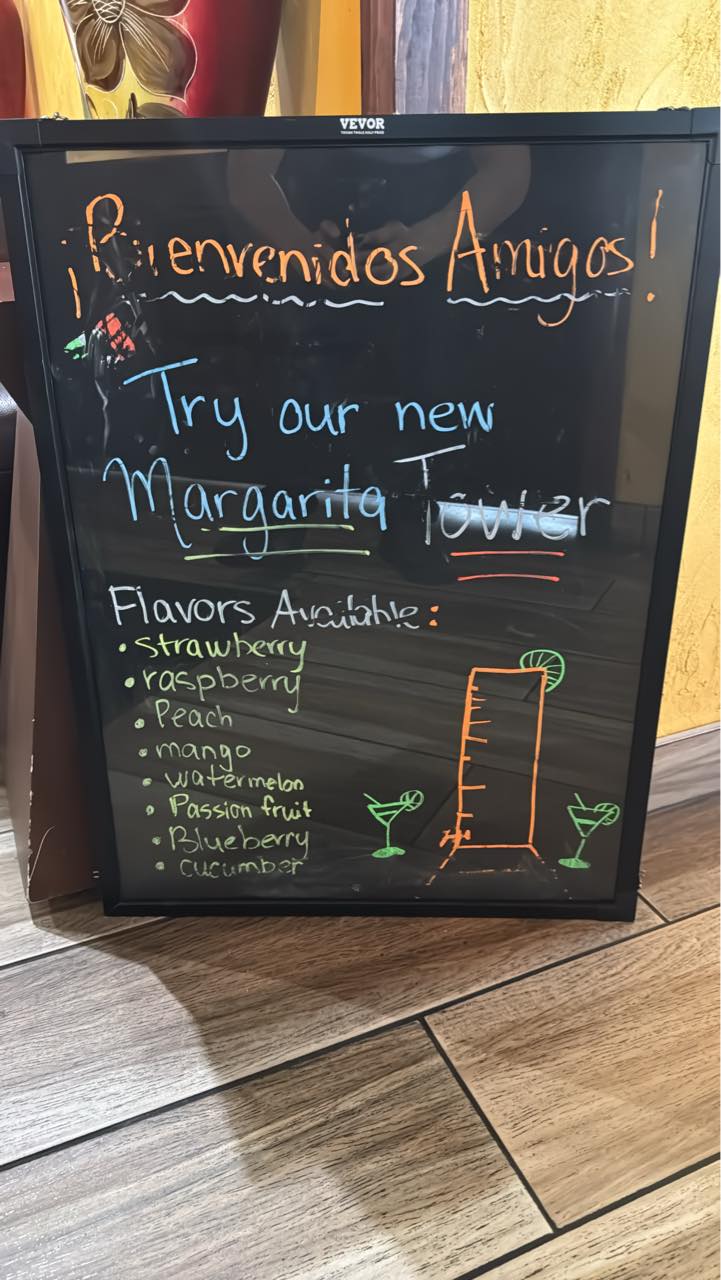 VEVOR
¡Bienvenidos Amigos!
Try our new
Margarita Tower
Flavors Available:
• strawberry
• raspberry
• Peach
• mango
• watermelon
• Passion fruit
• Blueberry
• cucumber